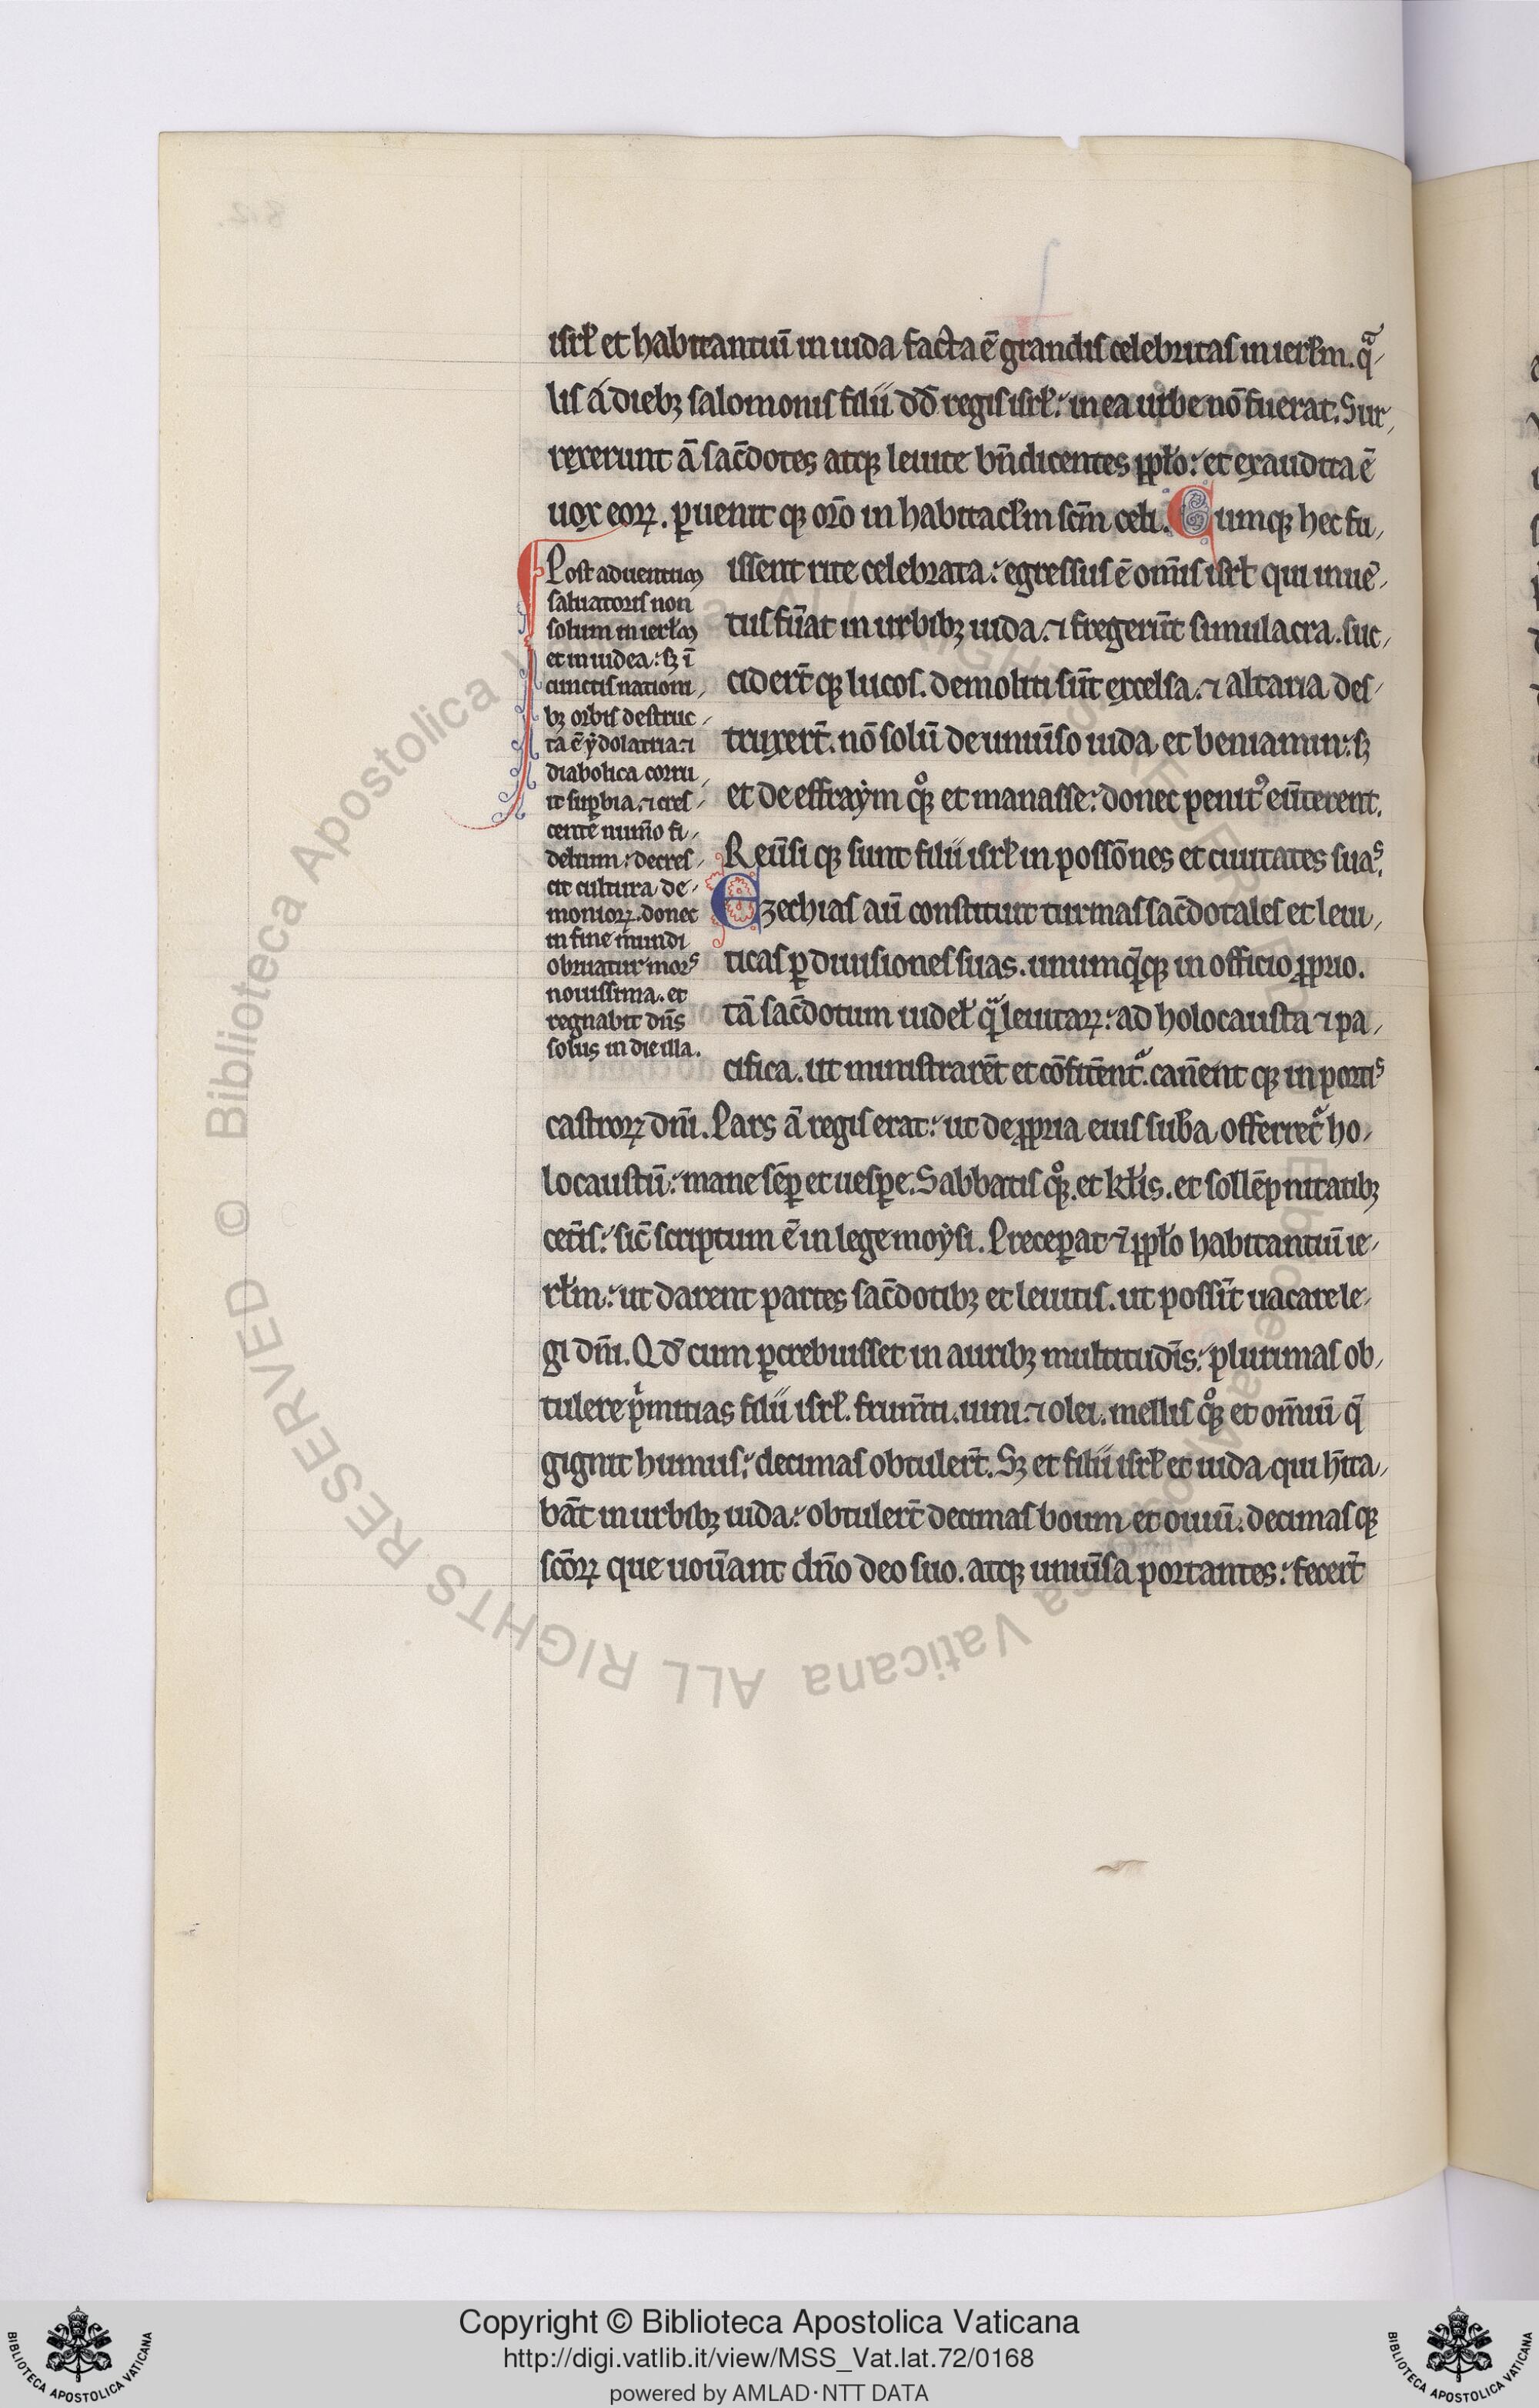 isrł et habitantiū in iuda facta ē grandis celebritas in ierłm. q̄
lis a diebꝫ salomonis filii dd̄ regis isrł: in ea urbe nō fuerat. Sur
rexerunt ā sac̄dotes atqꝫ leuite bn̄dicentes ꝓpło: et exaudita ē
uox eoꝝ. ꝑuenit qꝫ or̄o in habitacłm scm̄ celi. Cumqꝫ hec fu
issent rite celebrata: egressus ē om̄is isrł qui inuē
tus fūat in urbibꝫ iuda. ⁊ fregerūt simulacra. suc
cidert̄ qꝫ lucos. demoliti sūt excelsa. ⁊ altaria des
truxert̄. nō solū de uniūso iuda et beniamin: sꝫ
et de effraym qͦꝫ et manasse: donec penitꝰ eūterent.
Reūsi qꝫ sunt filii isrł in possōnes et ciuitates suas.
Ezechias aū constituit turmas sac̄dotales et leui
ticas ꝑ diuisiones suas. unumq̄qꝫ in officio ꝓprio.
tā sac̄dotum uidel̄ qͣ leuitaꝝ: ad holocausta ⁊ pa
cifica. ut ministrarēt et cōfitēntͬ. canēent qꝫ in portis
castroꝝ dn̄i. Pars ā regis erat: ut de ꝓpria eius sub̄a offerretͬ ho
locaustū: mane sēꝑ et uesꝑe. Sabbatis qͦꝫ. et kłis. et sollēpnitatibꝫ
cet̄is: sic̄ scriptum ē in lege moysi. Preceꝑat ⁊̄ ꝓpło habitantiū ie
rłm: ut darent partes sac̄dotibꝫ et leuitis. ut possīt uacare le
gi dn̄i. Qd̄ cum ꝑcrebuisset in auribꝫ multitudīs: plurimas ob
tulere pͥmitias filii isrł. frum̄ti. uini. ⁊ olei. mellis qͦꝫ et om̄iū q̄
gignit humus: decimas obtulert̄. Sꝫ et filii isrł et iuda qui h̄ita
bāt in urbibꝫ iuda: obtulert̄ decimas boum et ouiū. decimas qꝫ
scōꝝ que uoūant dn̄o deo suo. atqꝫ uniūsa portantes: fecert̄
Post aduentum
saluatoris non
solum in ierłm
et in iudea: sꝫ ī
cunctis nationi
bꝫ orbis destruc
ta ē ydolatria. ⁊
diabolica corru
it suꝑbia. ⁊ cres
cente num̄o fi
delium: decres
cit cultura de
monioꝝ. donec
in fine mundi
obruatur mors
nouissima. et
regnabit dn̄s
solus in die illa.
Copyright © Biblioteca Apostolica Vaticana
http://digi.vatlib.it/view/MSS_Vat.lat.72/0168
powered by AMLAD·NTT DATA
BIBLIOTECA APOSTOLICA VATICANA
BIBLIOTECA APOSTOLICA VATICANA
© Biblioteca Apostolica Vaticana ALL RIGHTS RESERVED